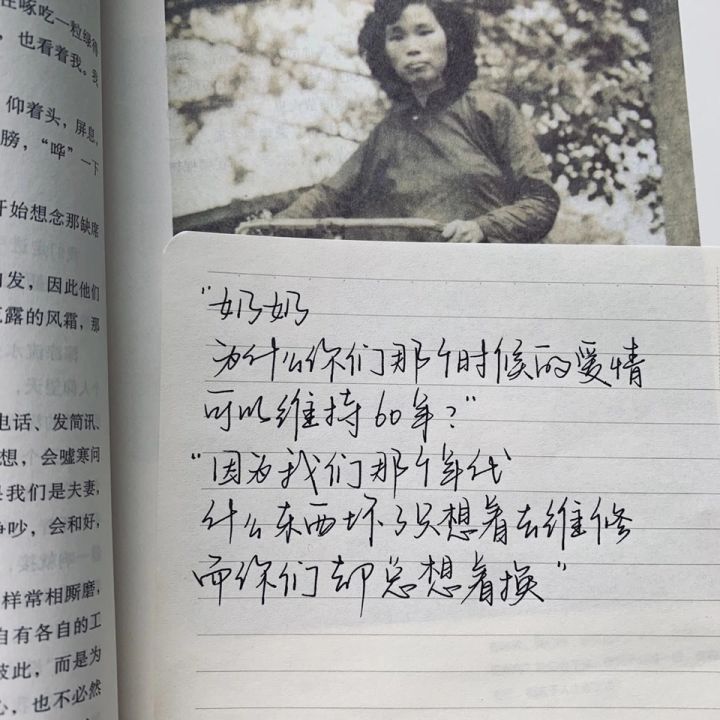 在啄吃一粒绿得
，也看着我。我
仰着头，屏息，
膀，“哗”一下
开始想念那缺席
自发，因此他们
露的风霜，那
电话、发简讯、
想，会嘘寒问
我们是夫妻，
争吵，会和好，
样常相厮磨，
自有各自的工
彼此，而是为
心，也不必然
"奶奶
为什么你们那个时候的爱情
可以维持60年?"
"因为我们那个年代
什么东西坏了只想着去维修
而你们却总想着换"